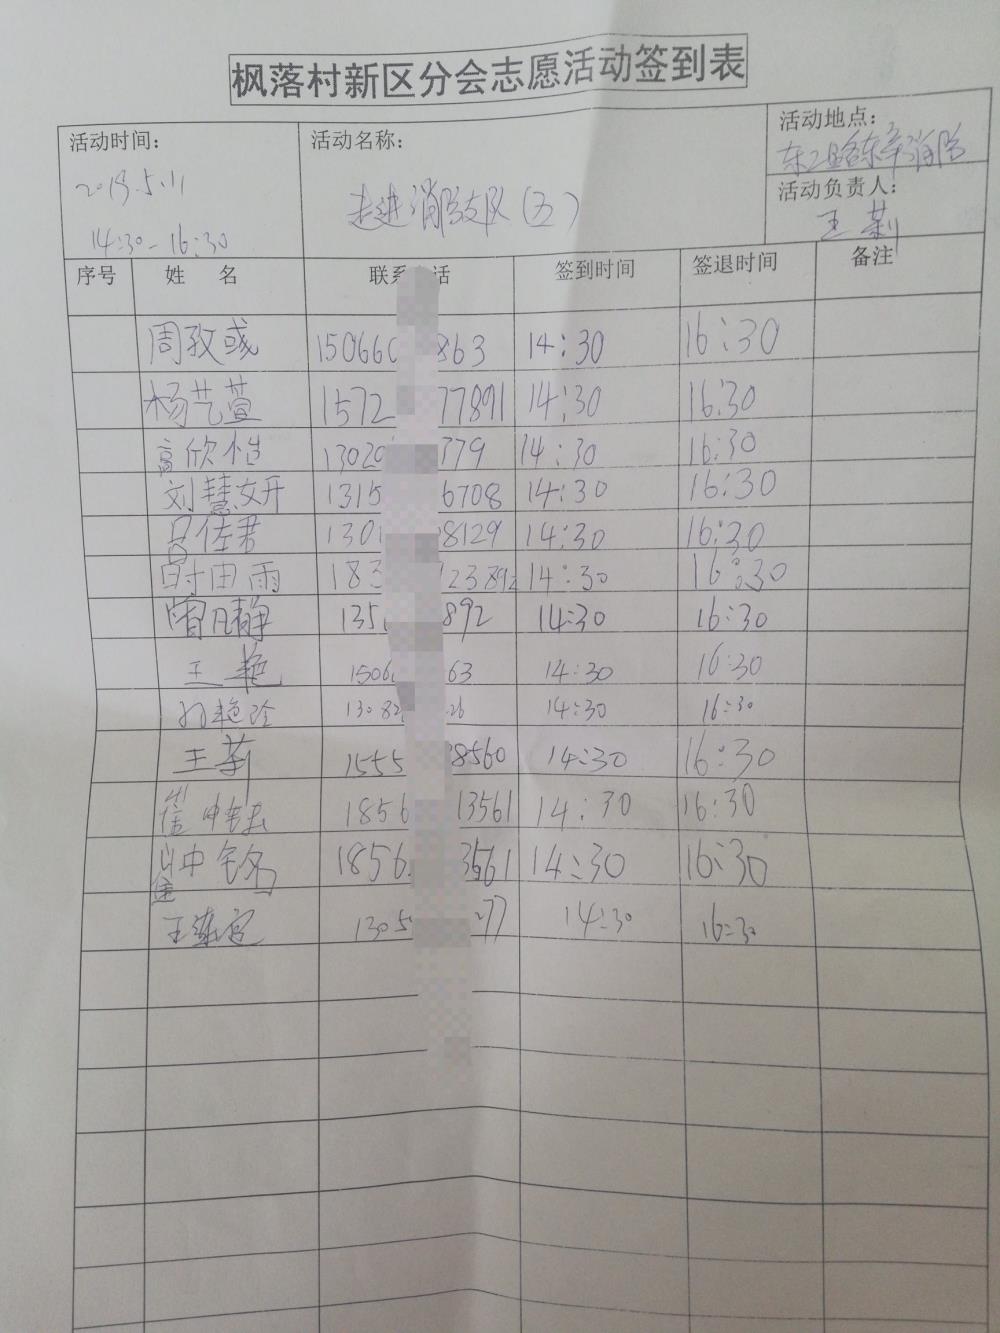 枫落村新区分会志愿活动签到表
活动时间: 活动名称: 活动地点:
2019.5.11 走进消防支队(五) 消防
14:30-16:30 活动负责人: 王莉
序号 姓名 联系 话 签到时间 签退时间 备注
周孜彧 150660 863 14:30 16:30
杨艺萱 1572 77891 14:30 16:30
高欣怡 13020 379 14:30 16:30
刘慧妍 1315 6708 14:30 16:30
吕佳君 1301 8129 14:30 16:30
时雨 183 2389 14:30 16:30
曾凡静 135 892 14:30 16:30
王艳 1506 63 14:30 16:30
孙艳玲 13082 26 14:30 16:30
王莉 1555 8560 14:30 16:30
崔 1856 13561 14:30 16:30
崔中铭 1856 3561 14:30 16:30
王 1305 77 14:30 16:30